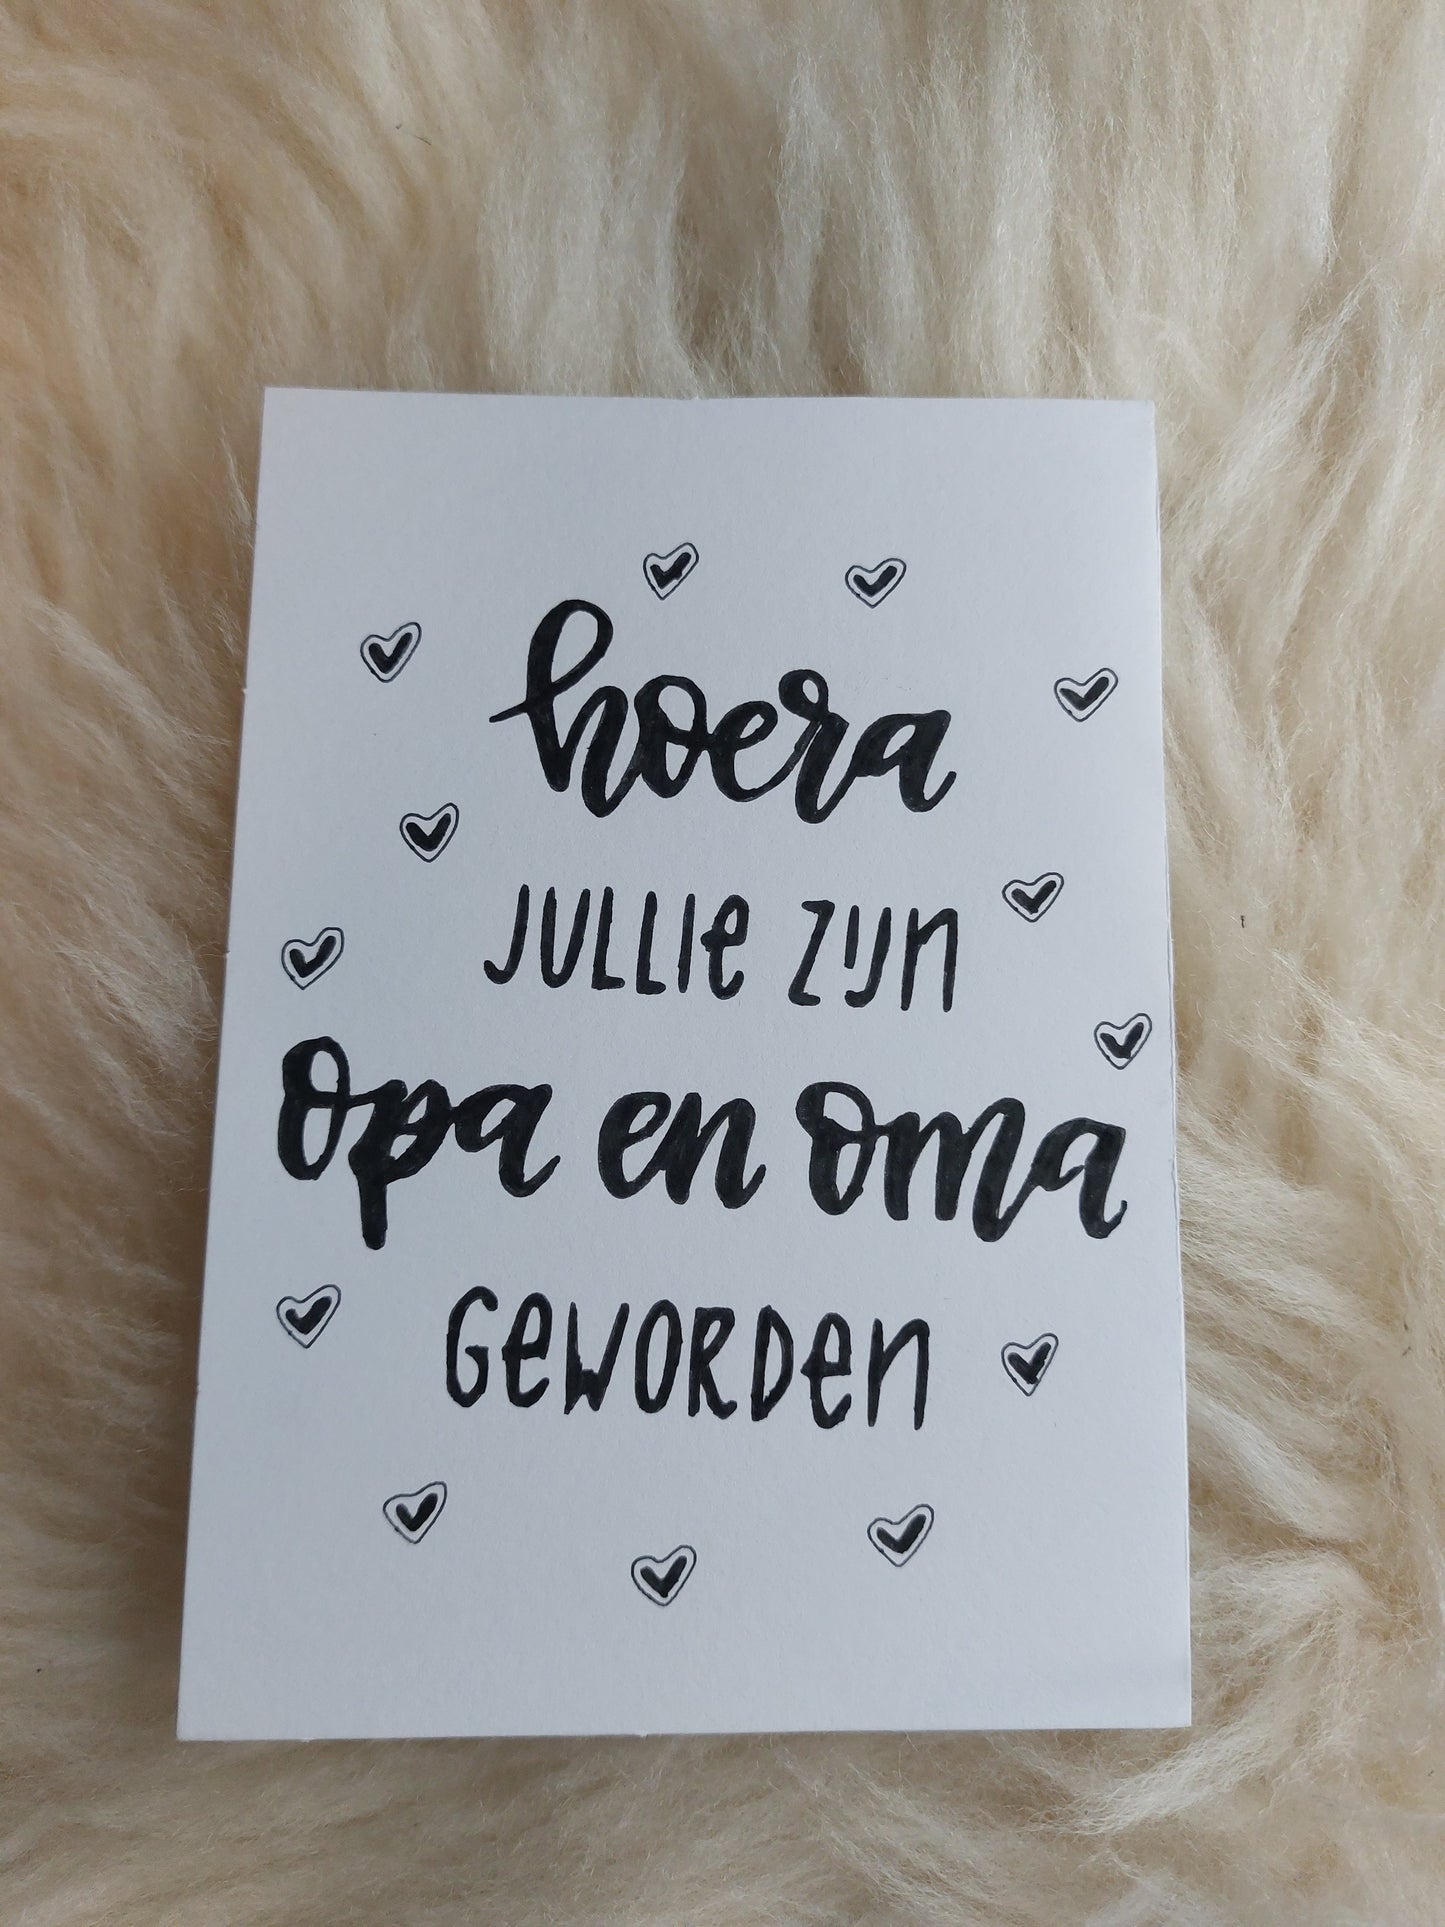 hoera
JULLIe ZIJn
opa en oma
GeWORDen